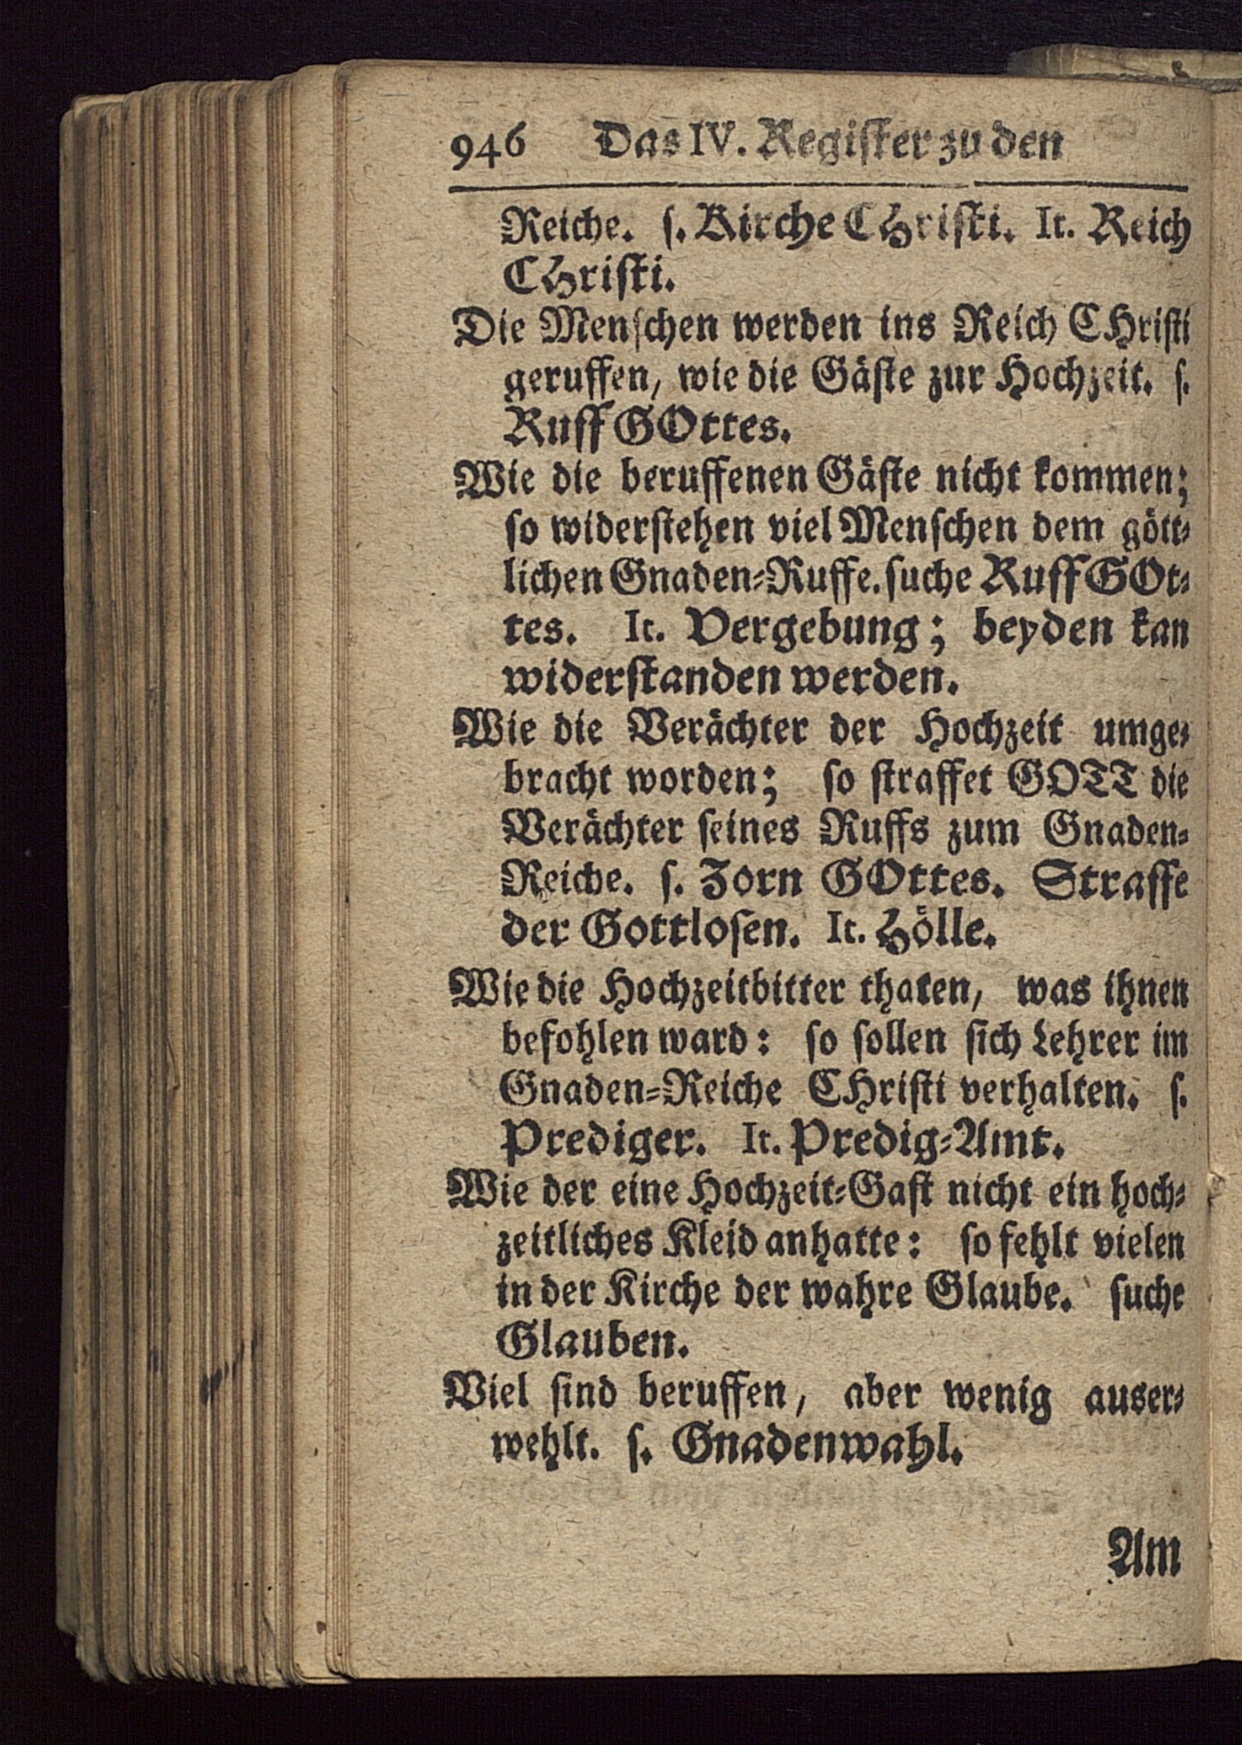 946 Das IV. Register zu den
Reiche. s. Kirche CHristi. It. Reich
CHristi.
Die Menschen werden ins Reich CHristi
geruffen, wie die Gäste zur Hochzeit. s.
Ruff GOttes.
Wie die beruffenen Gäste nicht kommen;
so widerstehen viel Menschen dem gött-
lichen Gnaden-Ruffe. suche Ruff GOt-
tes. It. Vergebung; beyden kan
widerstanden werden.
Wie die Verächter der Hochzeit umge-
bracht worden; so straffet GOTT die
Verächter seines Ruffs zum Gnaden-
Reiche. s. Zorn GOttes. Straffe
der Gottlosen. It. Hölle.
Wie die Hochzeitbitter thaten, was ihnen
befohlen ward: so sollen sich Lehrer im
Gnaden-Reiche CHristi verhalten. s.
Prediger. It. Predig-Amt.
Wie der eine Hochzeit-Gast nicht ein hoch-
zeitliches Kleid anhatte: so fehlt vielen
in der Kirche der wahre Glaube. suche
Glauben.
Viel sind beruffen, aber wenig auser-
wehlt. s. Gnadenwahl.
Am